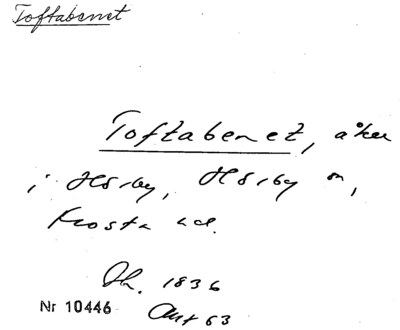 Toftabenet
Toftabenet, åker
i Hörby, Hörby sn,
Frosta hd.
1836
Nr 10446 Akt 63